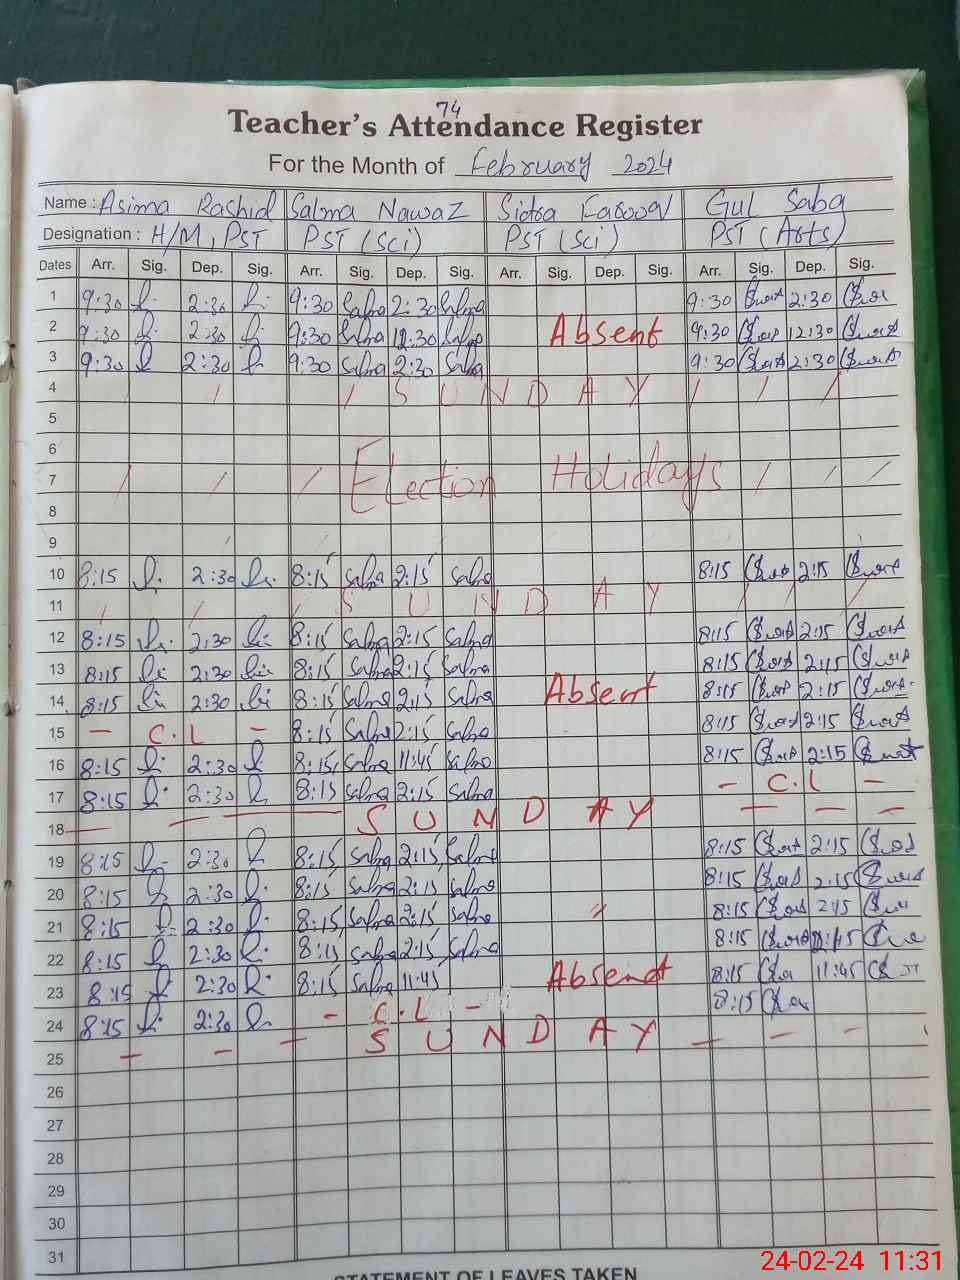 74
Teacher's Attendance Register
For the Month of February 2024
Name : Asima Rashid Salma Nawaz Sidra Farooq Gul Saba
Designation : H/M, PST PST (Sci) PST (Sci) PST (Arts)
Dates Arr. Sig. Dep. Sig. Arr. Sig. Dep. Sig. Arr. Sig. Dep. Sig. Arr. Sig. Dep. Sig.
1 9:30 2:30 9:30 Salma 2:30 Salma 9:30 2:30
2 9:30 2:30 9:30 Salma 12:30 Salma Absent 9:30 12:30
3 9:30 2:30 9:30 Salma 2:30 Salma 9:30 2:30
4 S U N D A Y
5
6
7 Election Holidays
8
9
10 8:15 2:30 8:15 Salma 2:15 Salma 8:15 2:15
11 S U N D A Y
12 8:15 2:30 8:15 Salma 2:15 Salma 8:15 2:15
13 8:15 2:30 8:15 Salma 2:15 Salma 8:15 2:15
14 8:15 2:30 8:15 Salma 2:15 Salma Absent 8:15 2:15
15 - C.L - 8:15 Salma 2:15 Salma 8:15 2:15
16 8:15 2:30 8:15 Salma 11:45 Salma 8:15 2:15
17 8:15 2:30 8:15 Salma 2:15 Salma - C.L -
18 S U N D A Y
19 8:15 2:30 8:15 Salma 2:15 Salma 8:15 2:15
20 8:15 2:30 8:15 Salma 2:15 Salma 8:15 2:15
21 8:15 2:30 8:15 Salma 2:15 Salma 8:15 2:15
22 8:15 2:30 8:15 Salma 2:15 Salma 8:15
23 8:15 2:30 8:15 Salma 11:45 Absent 8:15 11:45
24 8:15 2:30 - C.L - 8:15
25 S U N D A Y
26
27
28
29
30
31
STATEMENT OF LEAVES TAKEN
24-02-24 11:31